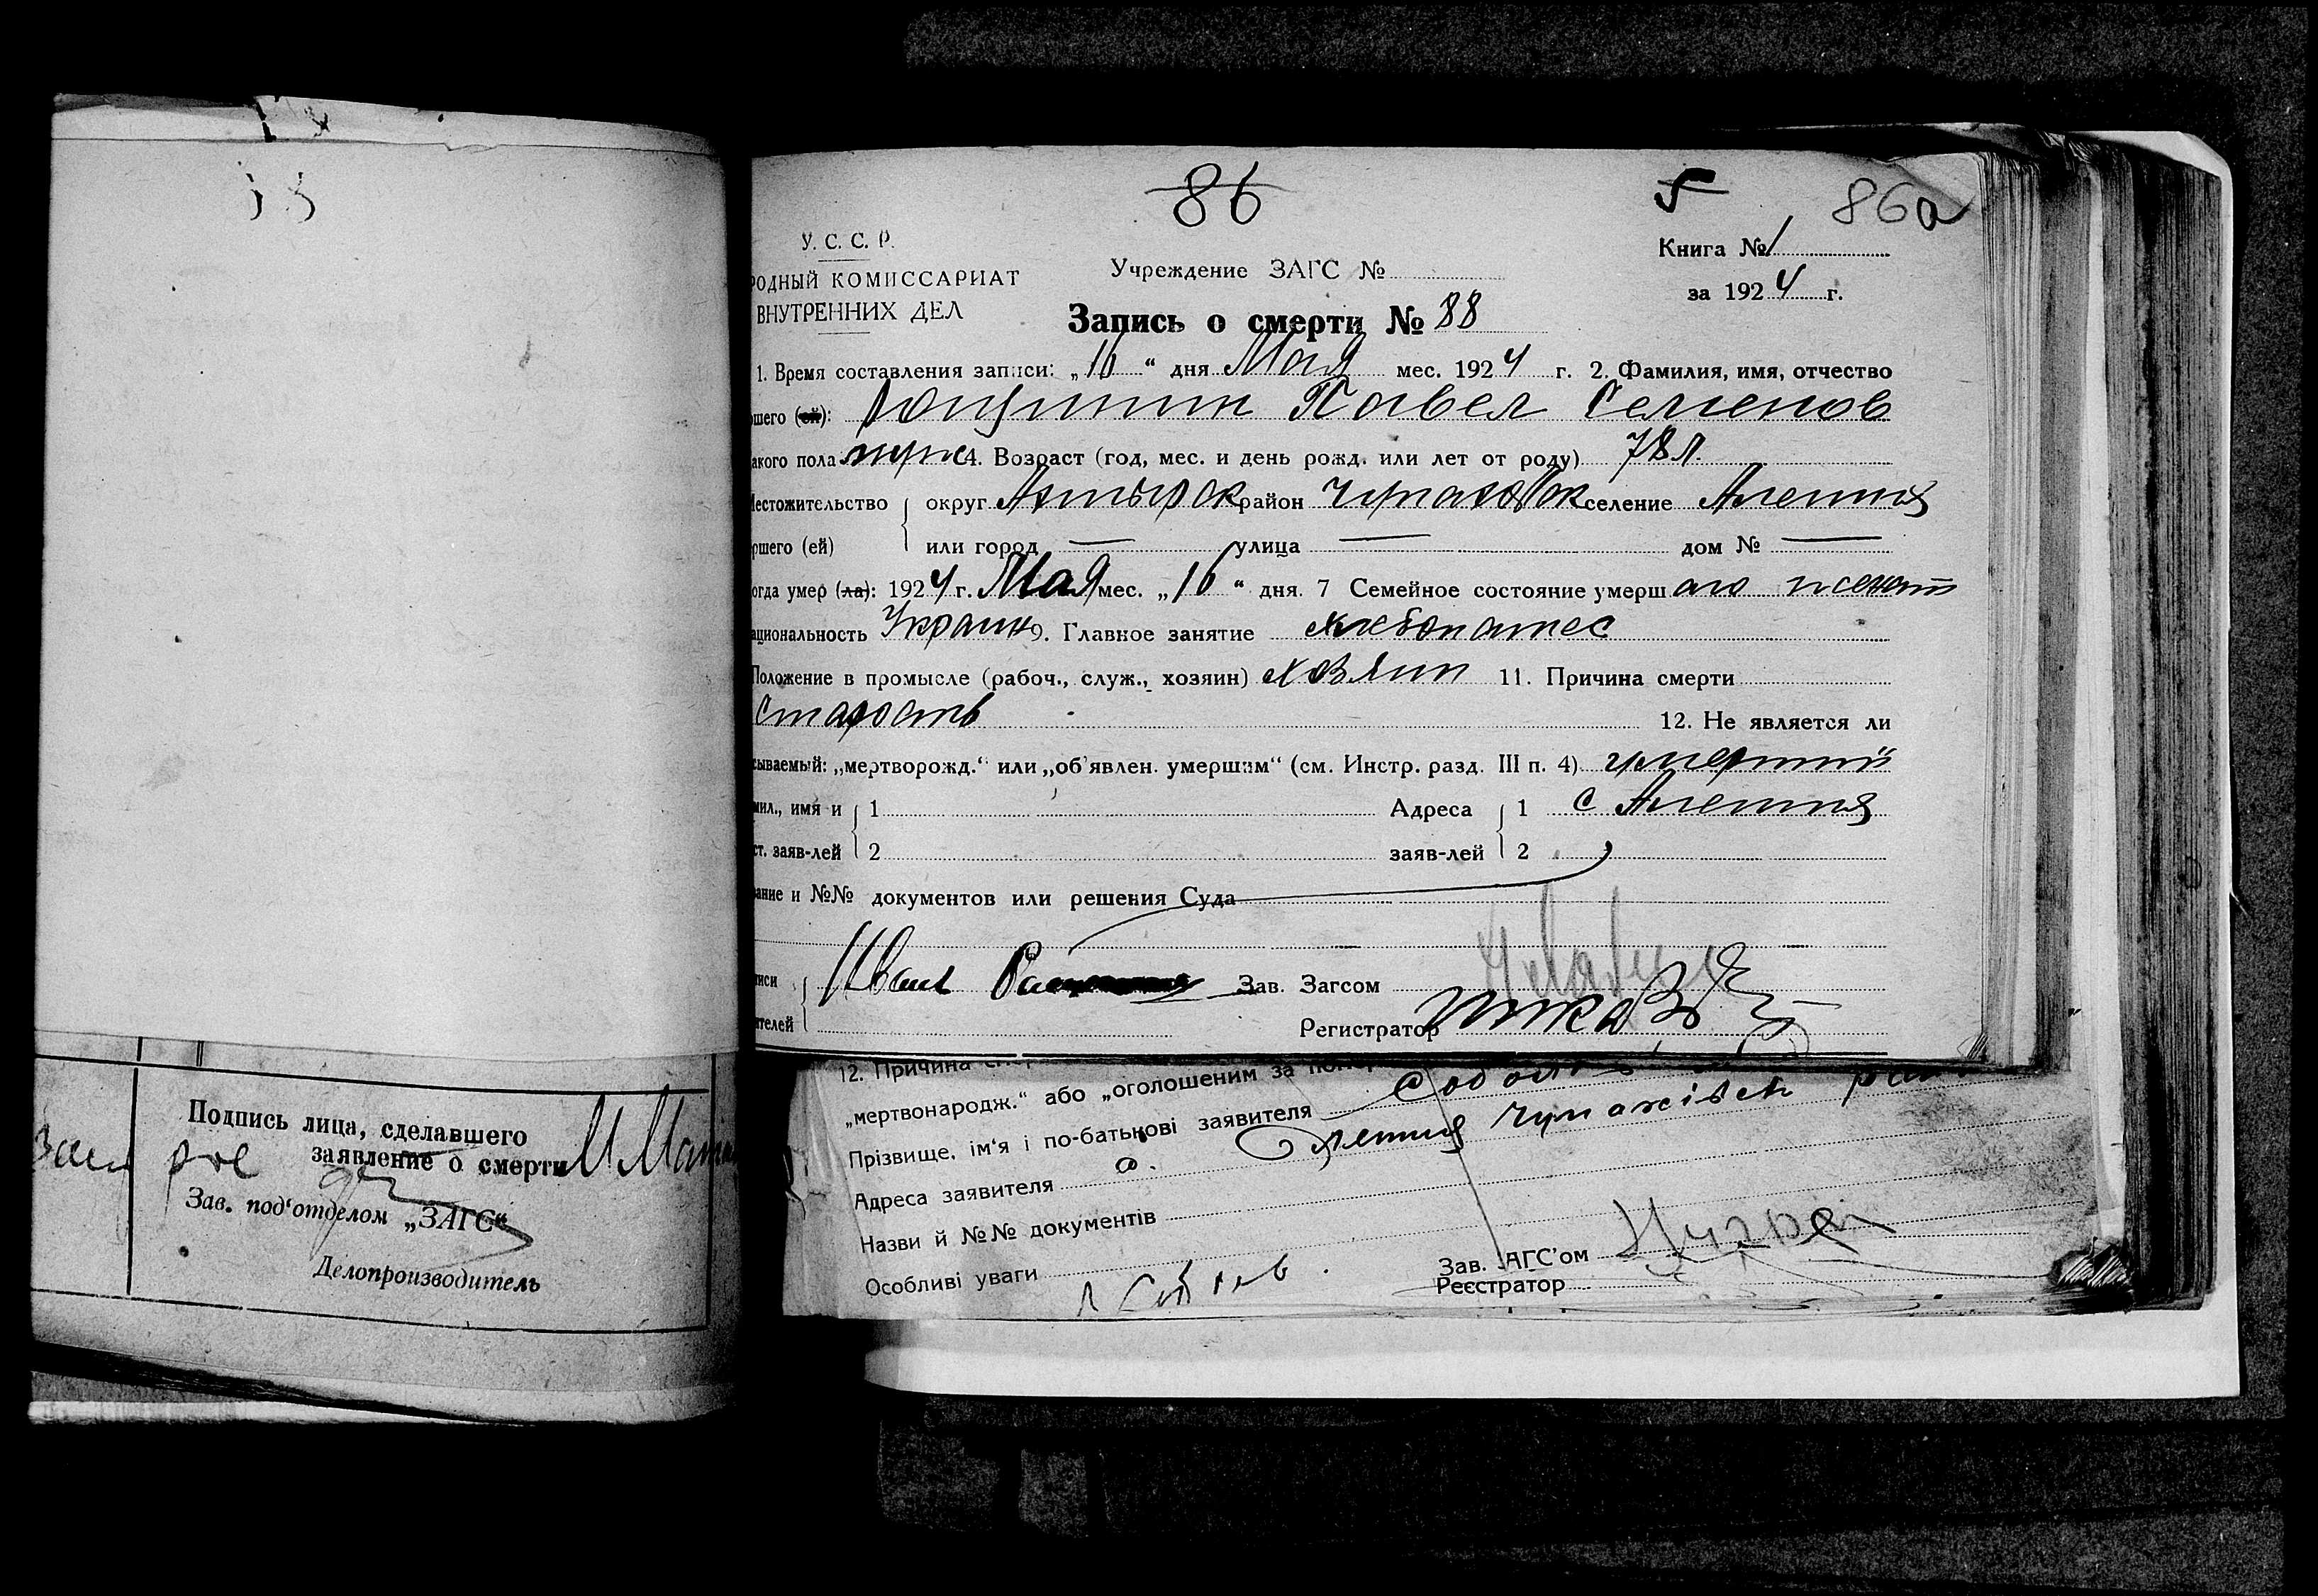 86
5
86а
У. С. С. Р.
РОДНЫЙ КОМИССАРИАТ
ВНУТРЕННИХ ДЕЛ
Учреждение ЗАГС №
Книга № 1
за 1924 г.
Запись о смерти № 88
1. Время составления записи: „16“ дня Мая мес. 1924 г. 2. Фамилия, имя, отчество
шего (ей): Павел Семенов
акого пола муж 4. Возраст (год, мес. и день рожд. или лет от роду) 78 л.
Местожительство округ Ахтырск район Чупаховск селение Алешня
ршего (ей) или город — улица — дом № —
огда умер (ла): 1924 г. Мая мес. „16“ дня. 7 Семейное состояние умерш аго женат
ациональность Украин 9. Главное занятие хлебопашес
Положение в промысле (рабоч., служ., хозяин) хозяин 11. Причина смерти
Старость 12. Не является ли
сываемый: „мертворожд.“ или „об'явлен. умершим“ (см. Инстр. разд. III п. 4) умерший
мил., имя и 1 Адреса 1 с Алешня
ст. заяв-лей 2 заяв-лей 2
ание и №№ документов или решения Суда
писи Иван Зав. Загсом
ителей Регистратор
12. Причина
„мертвонародж.“ або „оголошеним за
Прізвище, ім'я і по-батькові заявителя
Адреса заявителя с. Олешня Чупахівськ
Назви й №№ документів
Особливі уваги
Зав. ЗАГС'ом
Реєстратор
Подпись лица, сделавшего
заявление о смерти
Зав. под'отделом „ЗАГС“
Делопроизводитель